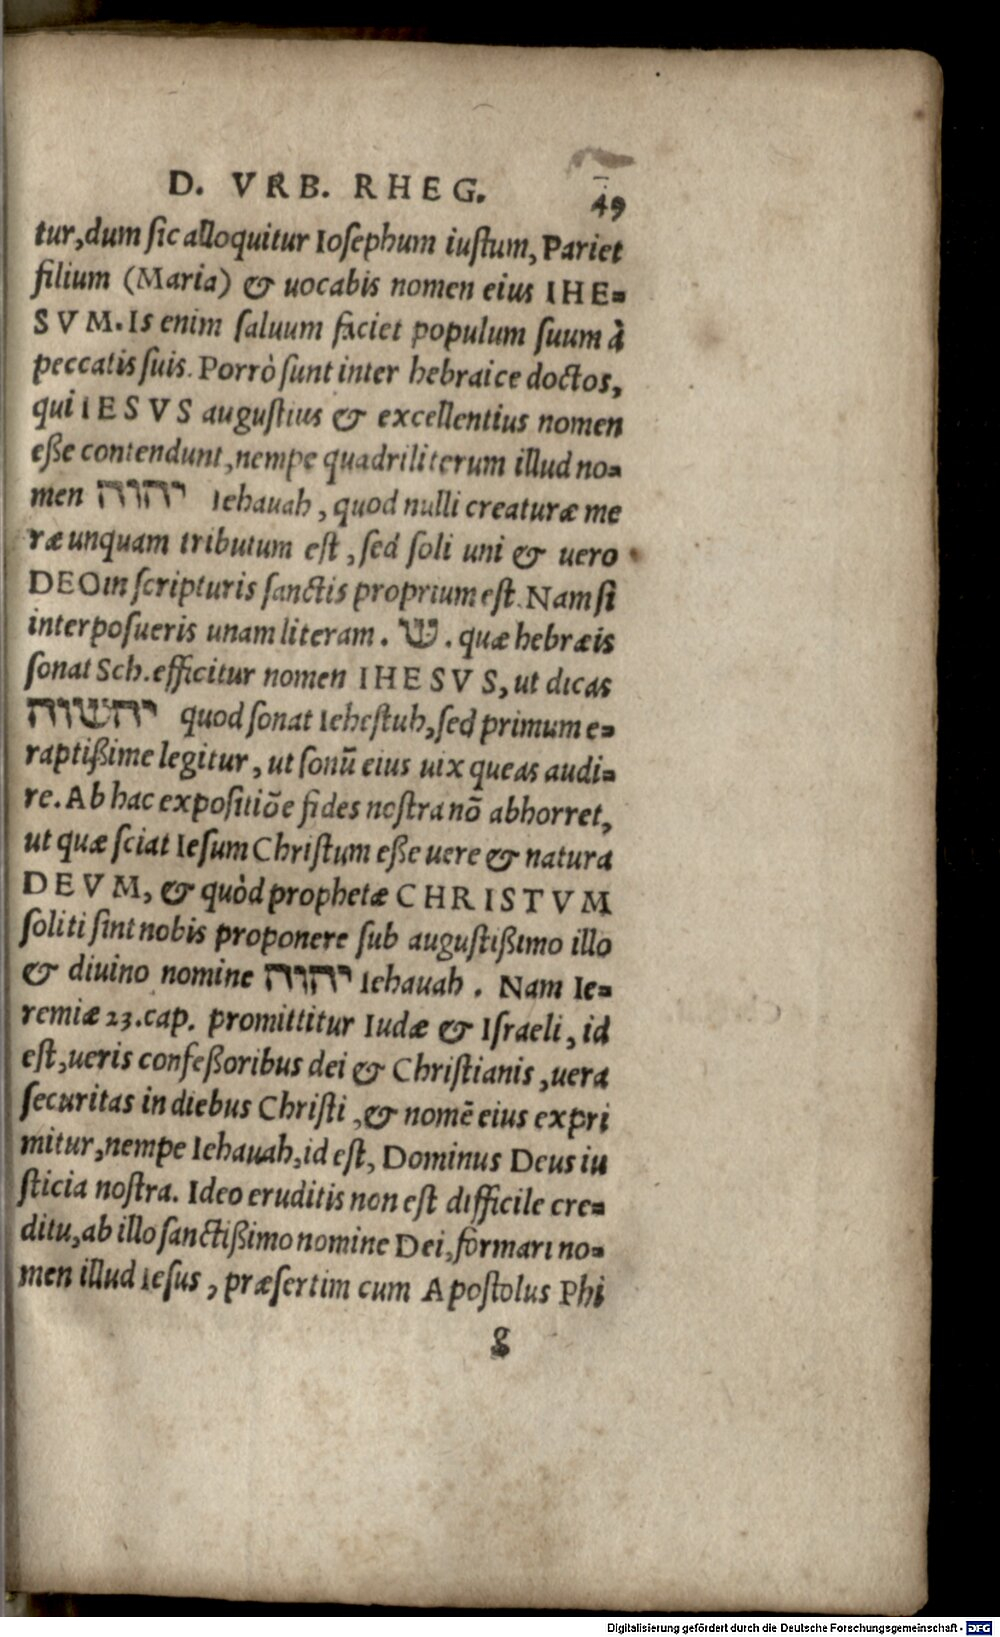 D. VRB. RHEG.
49
tur, dum ſic alloquitur Ioſephum iuſtum, Pariet
filium (Maria) & uocabis nomen eius IHE=
SVM. Is enim ſaluum faciet populum ſuum à
peccatis ſuis. Porrò ſunt inter hebraice doctos,
qui IESVS auguſtius & excellentius nomen
eſſe contendunt, nempe quadriliterum illud no=
men יהוה Iehauah, quod nulli creaturæ me
ræ unquam tributum eſt, ſed ſoli uni & uero
DEO in ſcripturis ſanctis proprium eſt. Nam ſi
interpoſueris unam literam. ש. quæ hebræis
ſonat Sch. efficitur nomen IHESVS, ut dicas
יהשוה quod ſonat Ieheſtuh, ſed primum e=
raptißime legitur, ut ſonū eius uix queas audi=
re. Ab hac expoſitiōe fides noſtra nō abhorret,
ut quæ ſciat Ieſum Chriſtum eſſe uere & natura
DEVM, & quòd prophetæ CHRISTVM
ſoliti ſint nobis proponere ſub auguſtißimo illo
& diuino nomine יהוה Iehauah. Nam Ie=
remiæ 23. cap. promittitur Iudæ & Iſraeli, id
eſt, ueris confeßoribus dei & Chriſtianis, uera
ſecuritas in diebus Chriſti, & nomē eius expri
mitur, nempe Iehauah, id eſt, Dominus Deus iu
ſticia noſtra. Ideo eruditis non eſt difficile cre=
ditu, ab illo ſanctißimo nomine Dei, formari no=
men illud Ieſus, præſertim cum Apoſtolus Phi
g
Digitalisierung gefördert durch die Deutsche Forschungsgemeinschaft - DFG